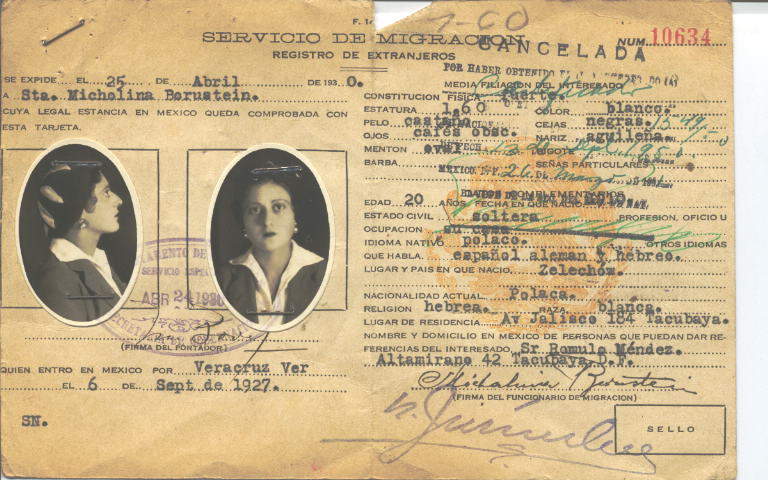 SERVICIO DE MIGRACION
REGISTRO DE EXTRANJEROS
SE EXPIDE EL 25 DE Abril DE 1930.
A Sta. Micholina Bornstein.
CUYA LEGAL ESTANCIA EN MEXICO QUEDA COMPROBADA CON
ESTA TARJETA.
ABR 24 1930
(FIRMA DEL PORTADOR)
QUIEN ENTRO EN MEXICO POR Veracruz Ver
EL 6 DE Sept de 1927.
SN.
CANCELADA
NUM. 10634
POR HABER OBTENIDO
MEDIA FILIACION DEL INTERESADO
CONSTITUCION FISICA fuerte.
ESTATURA 1.60 COLOR blanco.
PELO castaño CEJAS negras.
OJOS cafés obsc. NARIZ aguileña.
MENTON oval BIGOTE
BARBA SEÑAS PARTICULARES
MEXICO, D.F. 26 de marzo
COMPLEMENTARIOS
EDAD 20 AÑOS FECHA EN QUE NACIO
ESTADO CIVIL soltera PROFESION, OFICIO U
OCUPACION su casa
IDIOMA NATIVO polaco. OTROS IDIOMAS
QUE HABLA. español aleman y hebreo.
LUGAR Y PAIS EN QUE NACIO. Zelechów.
NACIONALIDAD ACTUAL. Polaca.
RELIGION hebrea. RAZA. blanca.
LUGAR DE RESIDENCIA. Av Jalisco 184 Tacubaya.
NOMBRE Y DOMICILIO EN MEXICO DE PERSONAS QUE PUEDAN DAR RE-
FERENCIAS DEL INTERESADO Sr Romulo Méndez.
Altamirano 42 Tacubaya D.F.
Michalina Bornstein
(FIRMA DEL FUNCIONARIO DE MIGRACION)
SELLO